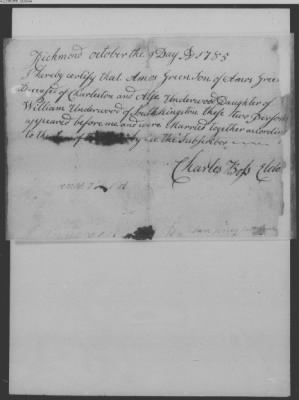 Richmond october the 9 Day AD 1785
I hereby certify that Amos Green Son of Amos Green
Deceast of Charleston and Alse Underwood Daughter of
William Underwood of South Kingston these two Persons
appeared before me and were Married together according
to the of by me the Subscriber
Charles Boss Elder